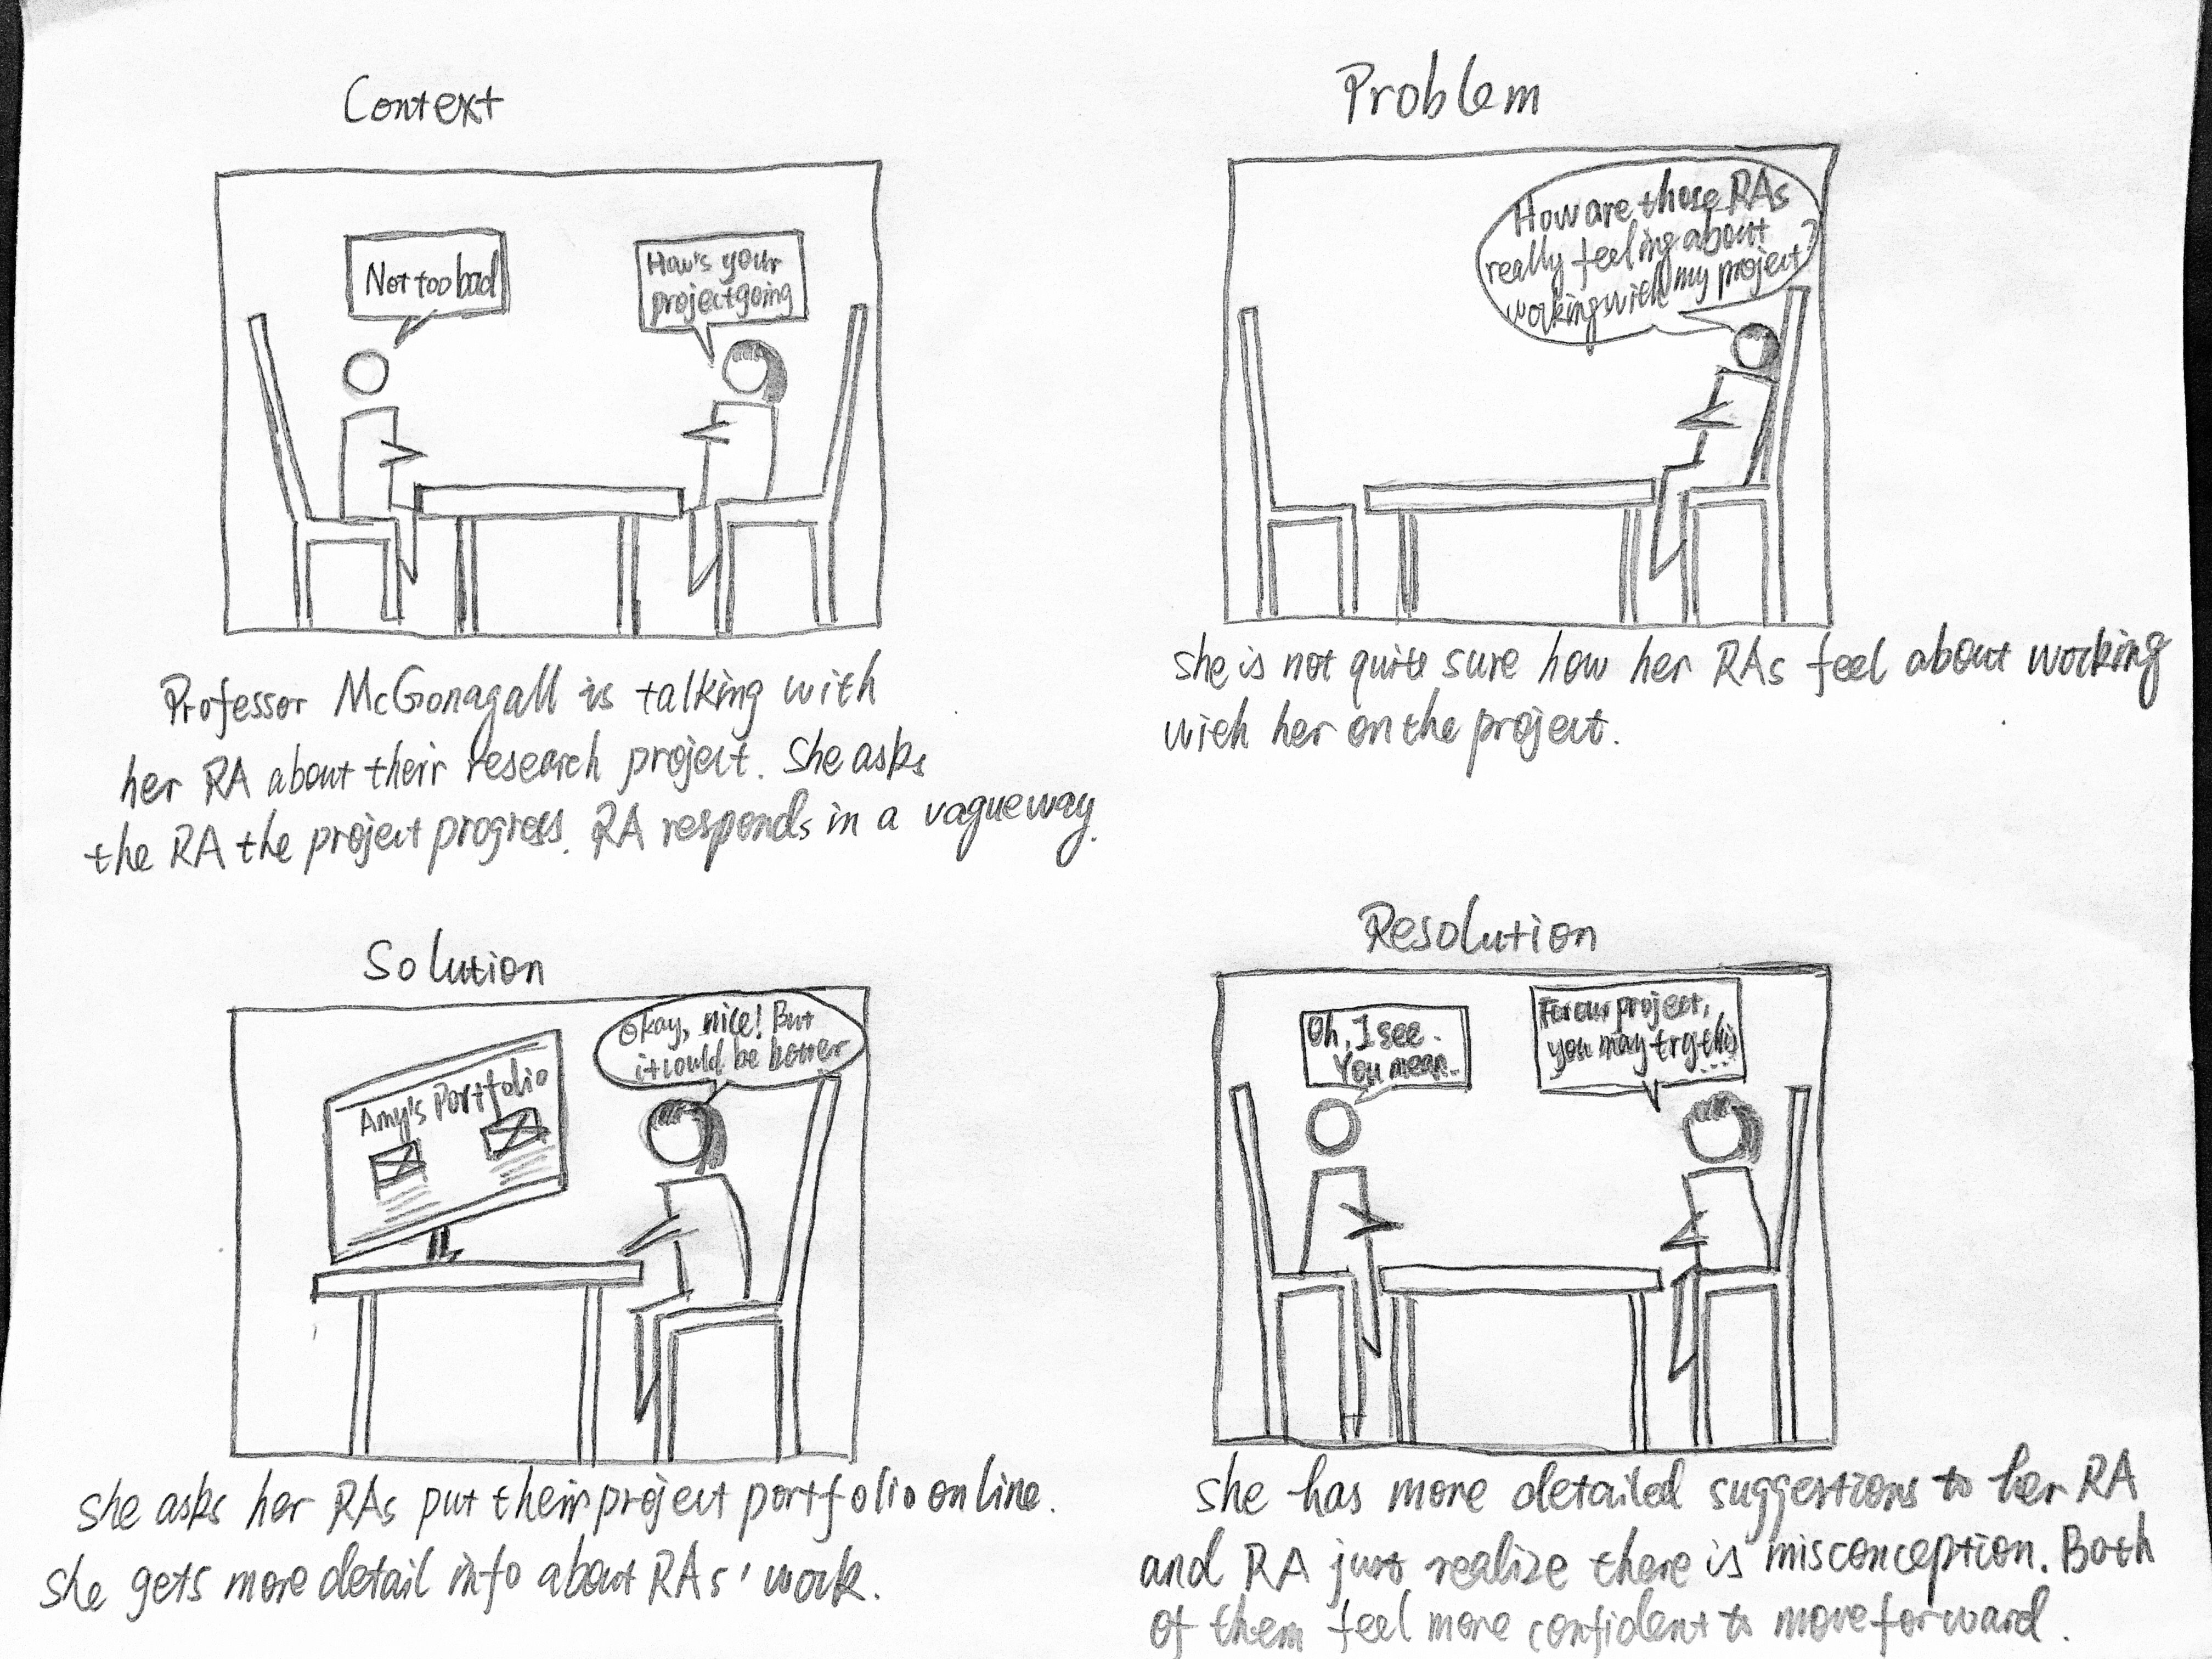 Context
Not too bad
How's your
project going
Professor McGonagall is talking with
her RA about their research project. She asks
the RA the project progress. RA responds in a vague way.
Problem
How are those RAs
really feeling about
working with my project?
she is not quite sure how her RAs feel about working
with her on the project.
Solution
Amy's Portfolio
Okay, nice! But
it could be better
she asks her RAs put their project portfolio online.
she gets more detail info about RAs' work.
Resolution
Oh, I see.
You mean..
For our project,
you may try this
...
she has more detailed suggestions to her RA
and RA just realize there is misconception. Both
of them feel more confident to move forward.